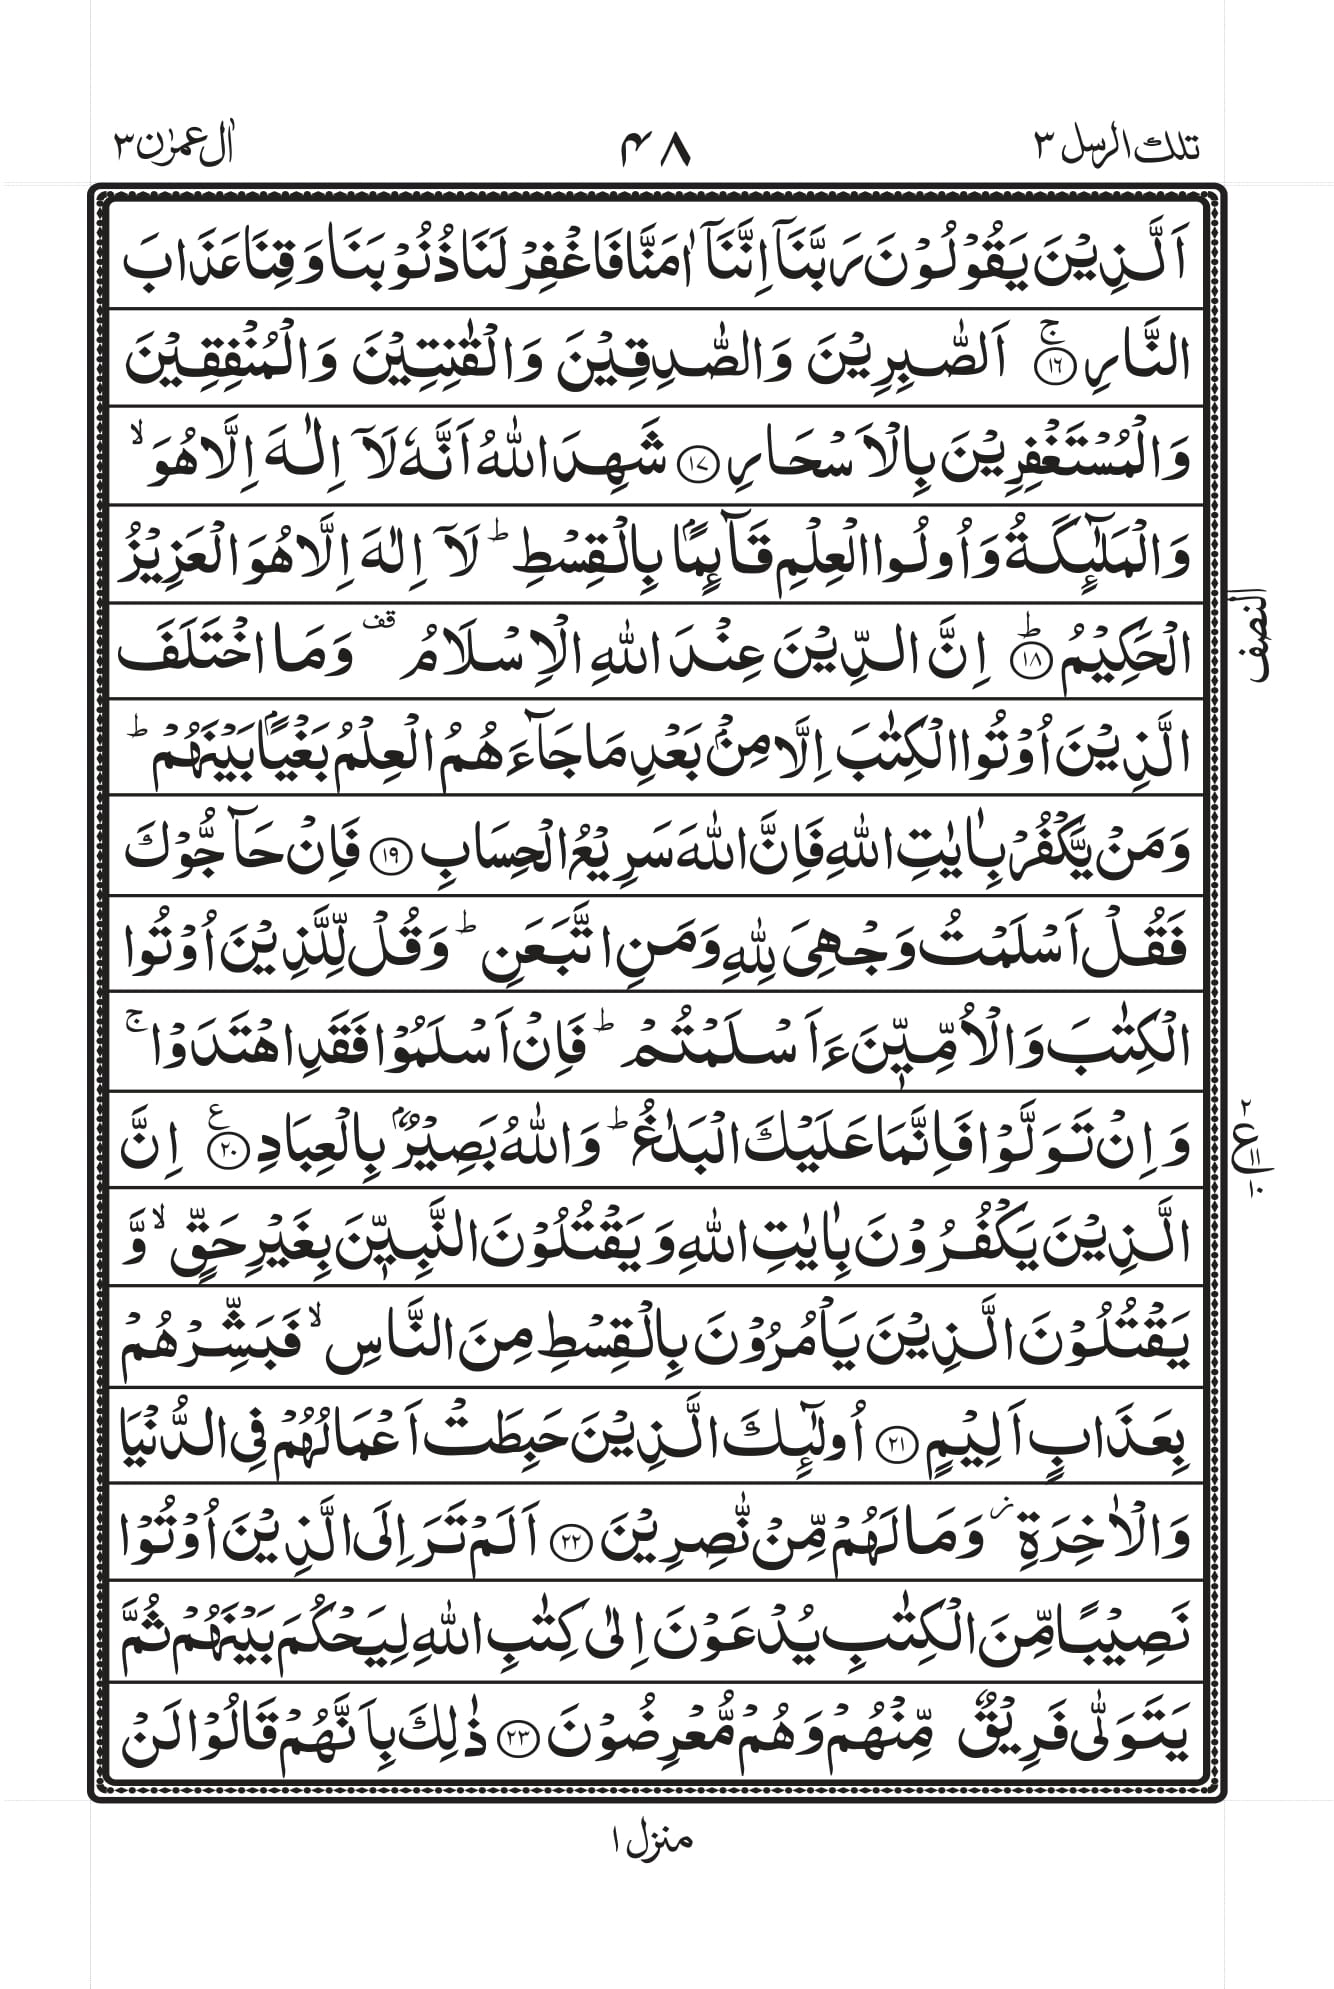 تلك الرسل ٣
٤٨
اٰل عمرٰن ٣
اَلَّذِيْنَ يَقُوْلُوْنَ رَبَّنَآ اِنَّنَآ اٰمَنَّا فَاغْفِرْ لَنَا ذُنُوْبَنَا وَقِنَا عَذَابَ
النَّارِ ۚ‏﴿۱۶﴾ اَلصّٰبِرِيْنَ وَالصّٰدِقِيْنَ وَالْقٰنِتِيْنَ وَالْمُنْفِقِيْنَ
وَالْمُسْتَغْفِرِيْنَ بِالْاَسْحَارِ ﴿۱۷﴾ شَهِدَ اللّٰهُ اَنَّهٗ لَآ اِلٰهَ اِلَّا هُوَ ۙ
وَالْمَلٰٓئِكَةُ وَاُولُوا الْعِلْمِ قَآئِمًاۢ بِالْقِسْطِ ؕ لَآ اِلٰهَ اِلَّا هُوَ الْعَزِيْزُ
الْحَكِيْمُ ؕ﴿۱۸﴾ اِنَّ الدِّيْنَ عِنْدَ اللّٰهِ الْاِسْلَامُ قف وَمَا اخْتَلَفَ
النصف
الَّذِيْنَ اُوْتُوا الْكِتٰبَ اِلَّا مِنْۢ بَعْدِ مَا جَآءَهُمُ الْعِلْمُ بَغْيًاۢ بَيْنَهُمْ ؕ
وَمَنْ يَّكْفُرْ بِاٰيٰتِ اللّٰهِ فَاِنَّ اللّٰهَ سَرِيْعُ الْحِسَابِ ﴿۱۹﴾ فَاِنْ حَآجُّوْكَ
فَقُلْ اَسْلَمْتُ وَجْهِىَ لِلّٰهِ وَمَنِ اتَّبَعَنِ ؕ وَقُلْ لِّلَّذِيْنَ اُوْتُوا
الْكِتٰبَ وَالْاُمِّيّٖنَ ءَاَسْلَمْتُمْ ؕ فَاِنْ اَسْلَمُوْا فَقَدِ اهْتَدَوْا ۚ
وَاِنْ تَوَلَّوْا فَاِنَّمَا عَلَيْكَ الْبَلٰغُ ؕ وَاللّٰهُ بَصِيْرٌۢ بِالْعِبَادِ ﴿۲۰﴾ ع اِنَّ
٢ ع ١١ ١٠
الَّذِيْنَ يَكْفُرُوْنَ بِاٰيٰتِ اللّٰهِ وَيَقْتُلُوْنَ النَّبِيّٖنَ بِغَيْرِ حَقٍّ ۙ وَّ
يَقْتُلُوْنَ الَّذِيْنَ يَاْمُرُوْنَ بِالْقِسْطِ مِنَ النَّاسِ ۙ فَبَشِّرْهُمْ
بِعَذَابٍ اَلِيْمٍ ﴿۲۱﴾ اُولٰٓئِكَ الَّذِيْنَ حَبِطَتْ اَعْمَالُهُمْ فِى الدُّنْيَا
وَالْاٰخِرَةِ ز وَمَا لَهُمْ مِّنْ نّٰصِرِيْنَ ﴿۲۲﴾ اَلَمْ تَرَ اِلَى الَّذِيْنَ اُوْتُوْا
نَصِيْبًا مِّنَ الْكِتٰبِ يُدْعَوْنَ اِلٰى كِتٰبِ اللّٰهِ لِيَحْكُمَ بَيْنَهُمْ ثُمَّ
يَتَوَلّٰى فَرِيْقٌ مِّنْهُمْ وَهُمْ مُّعْرِضُوْنَ ﴿۲۳﴾ ذٰلِكَ بِاَنَّهُمْ قَالُوْا لَنْ
منزل ١